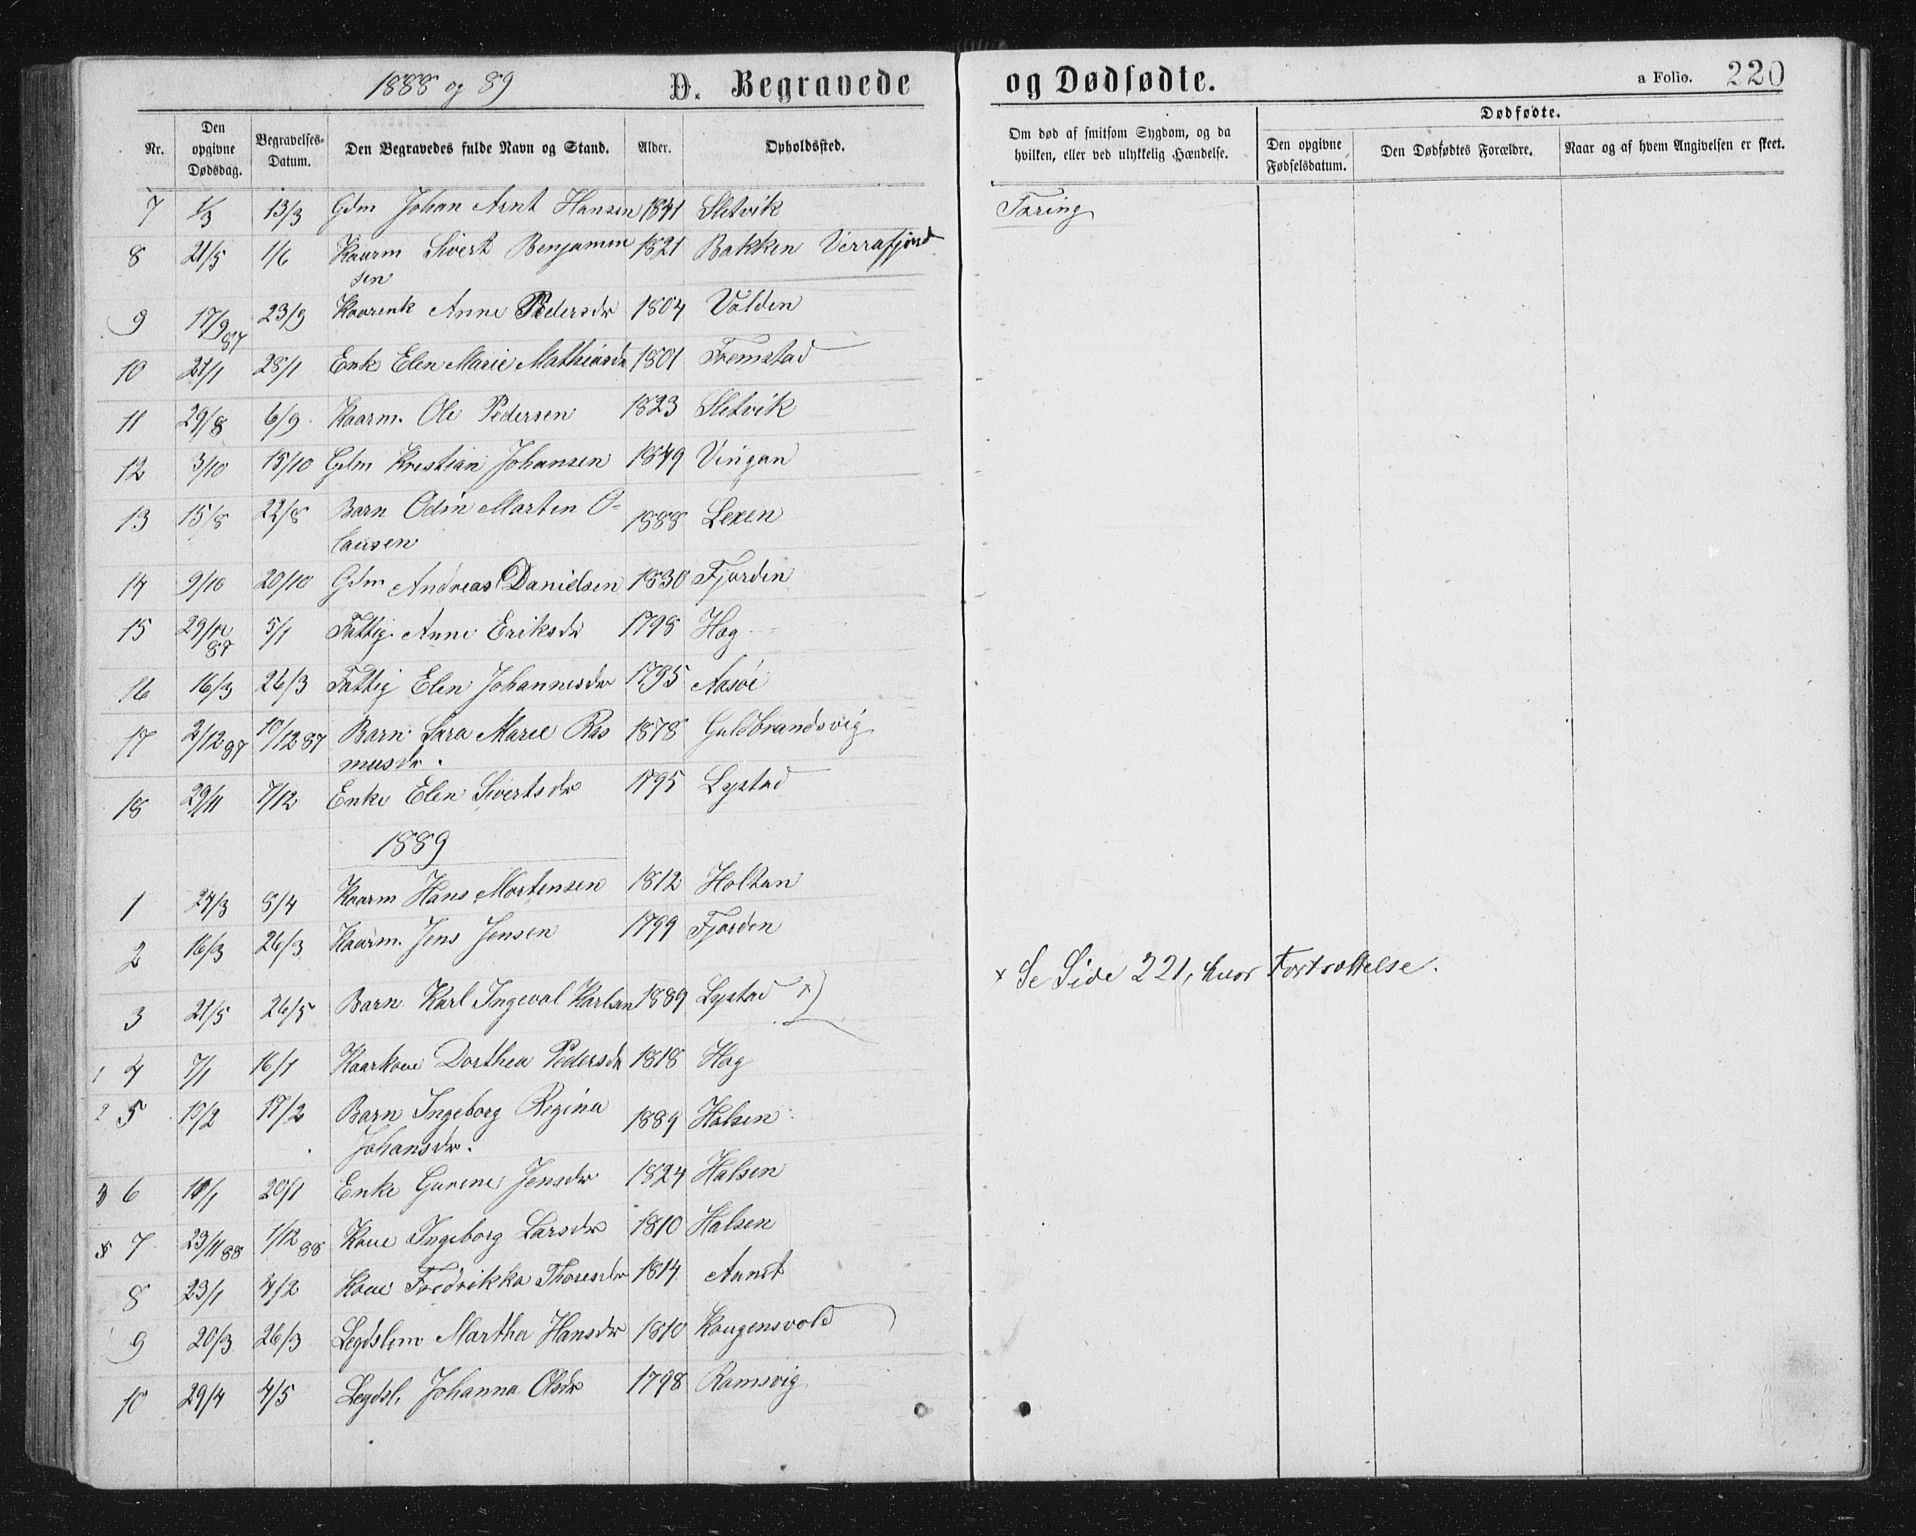 1888 og 89 D. Begravede og Dødfødte. a Folio. 220
Nr. Den opgivne Dødsdag. Begravelses-Datum. Den Begravedes fulde Navn og Stand. Alder. Opholdssted. Om død af smitsom Sygdom, og da hvilken, eller ved ulykkelig Hændelse. Dødfødte. Den opgivne Fødselsdatum. Den Dødfødtes Forældre. Naar og af hvem Angivelsen er skeet.
7 1/3 13/3 Gdm Johan Arnt Hansen 1841 Sletvik Tæring
8 21/5 1/6 Kaarm Sivert Benjamin 1821 Bakken Verrafjord
sen
9 17/9 87 23/9 Kaarenk Anne Pedersdr 1804 Volden
10 21/1 28/1 Enk Elen Marie Mathiasdr 1801 Fremstad
11 29/8 6/9 Kaarm. Ole Pedersen 1823 Sletvik
12 3/10 15/10 Gdm Kristian Johansen 1849 Vingan
13 15/8 22/8 Barn Odin Martin O-
lausen 1888 Lexen
14 9/10 20/10 Gdm Andreas Danielsen 1830 Fjorden
15 29/12 87 5/1 Fattig. Anne Eriksdr 1798 Hog
16 16/3 26/3 Fattig Elen Johannesdr 1795 Aasøe
17 2/12 87 10/12 87 Barn Sara Marie Ras 1878 Guldbrandsvig
musdr.
18 29/11 7/12 Enke Elen Sivertsdr 1795 Lystad
1889
1 24/3 8/4 Kaarm Hans Mortensen 1812 Holtan
2 16/3 26/3 Kaarm. Jens Jensen 1799 Fjorden
× Se Side 221, hvor Fortsættelse.
3 21/5 26/5 Barn Karl Ingeval Karlsen 1889 Lystad ×)
1 4 7/1 16/1 Kaarkone Dorthea Pedersdr 1818 Hog
2 5 10/2 17/2 Barn Ingeborg Regina
Johansdr. 1889 Halsen
6 11/1 20/1 Enke Gurine Jensdr 1824 Halsen
7 23/11 88 1/12 88 Kone Ingeborg Larsdr 1810 Halsen
8 23/1 4/2 Kone Fredrikka Thoresdr 1814 Aunet
9 20/3 26/3 Legdslem Martha Hansdr 1810 Kongensvold
10 29/4 4/5 Legdsl. Johanna Olsdr 1798 Ramsvig